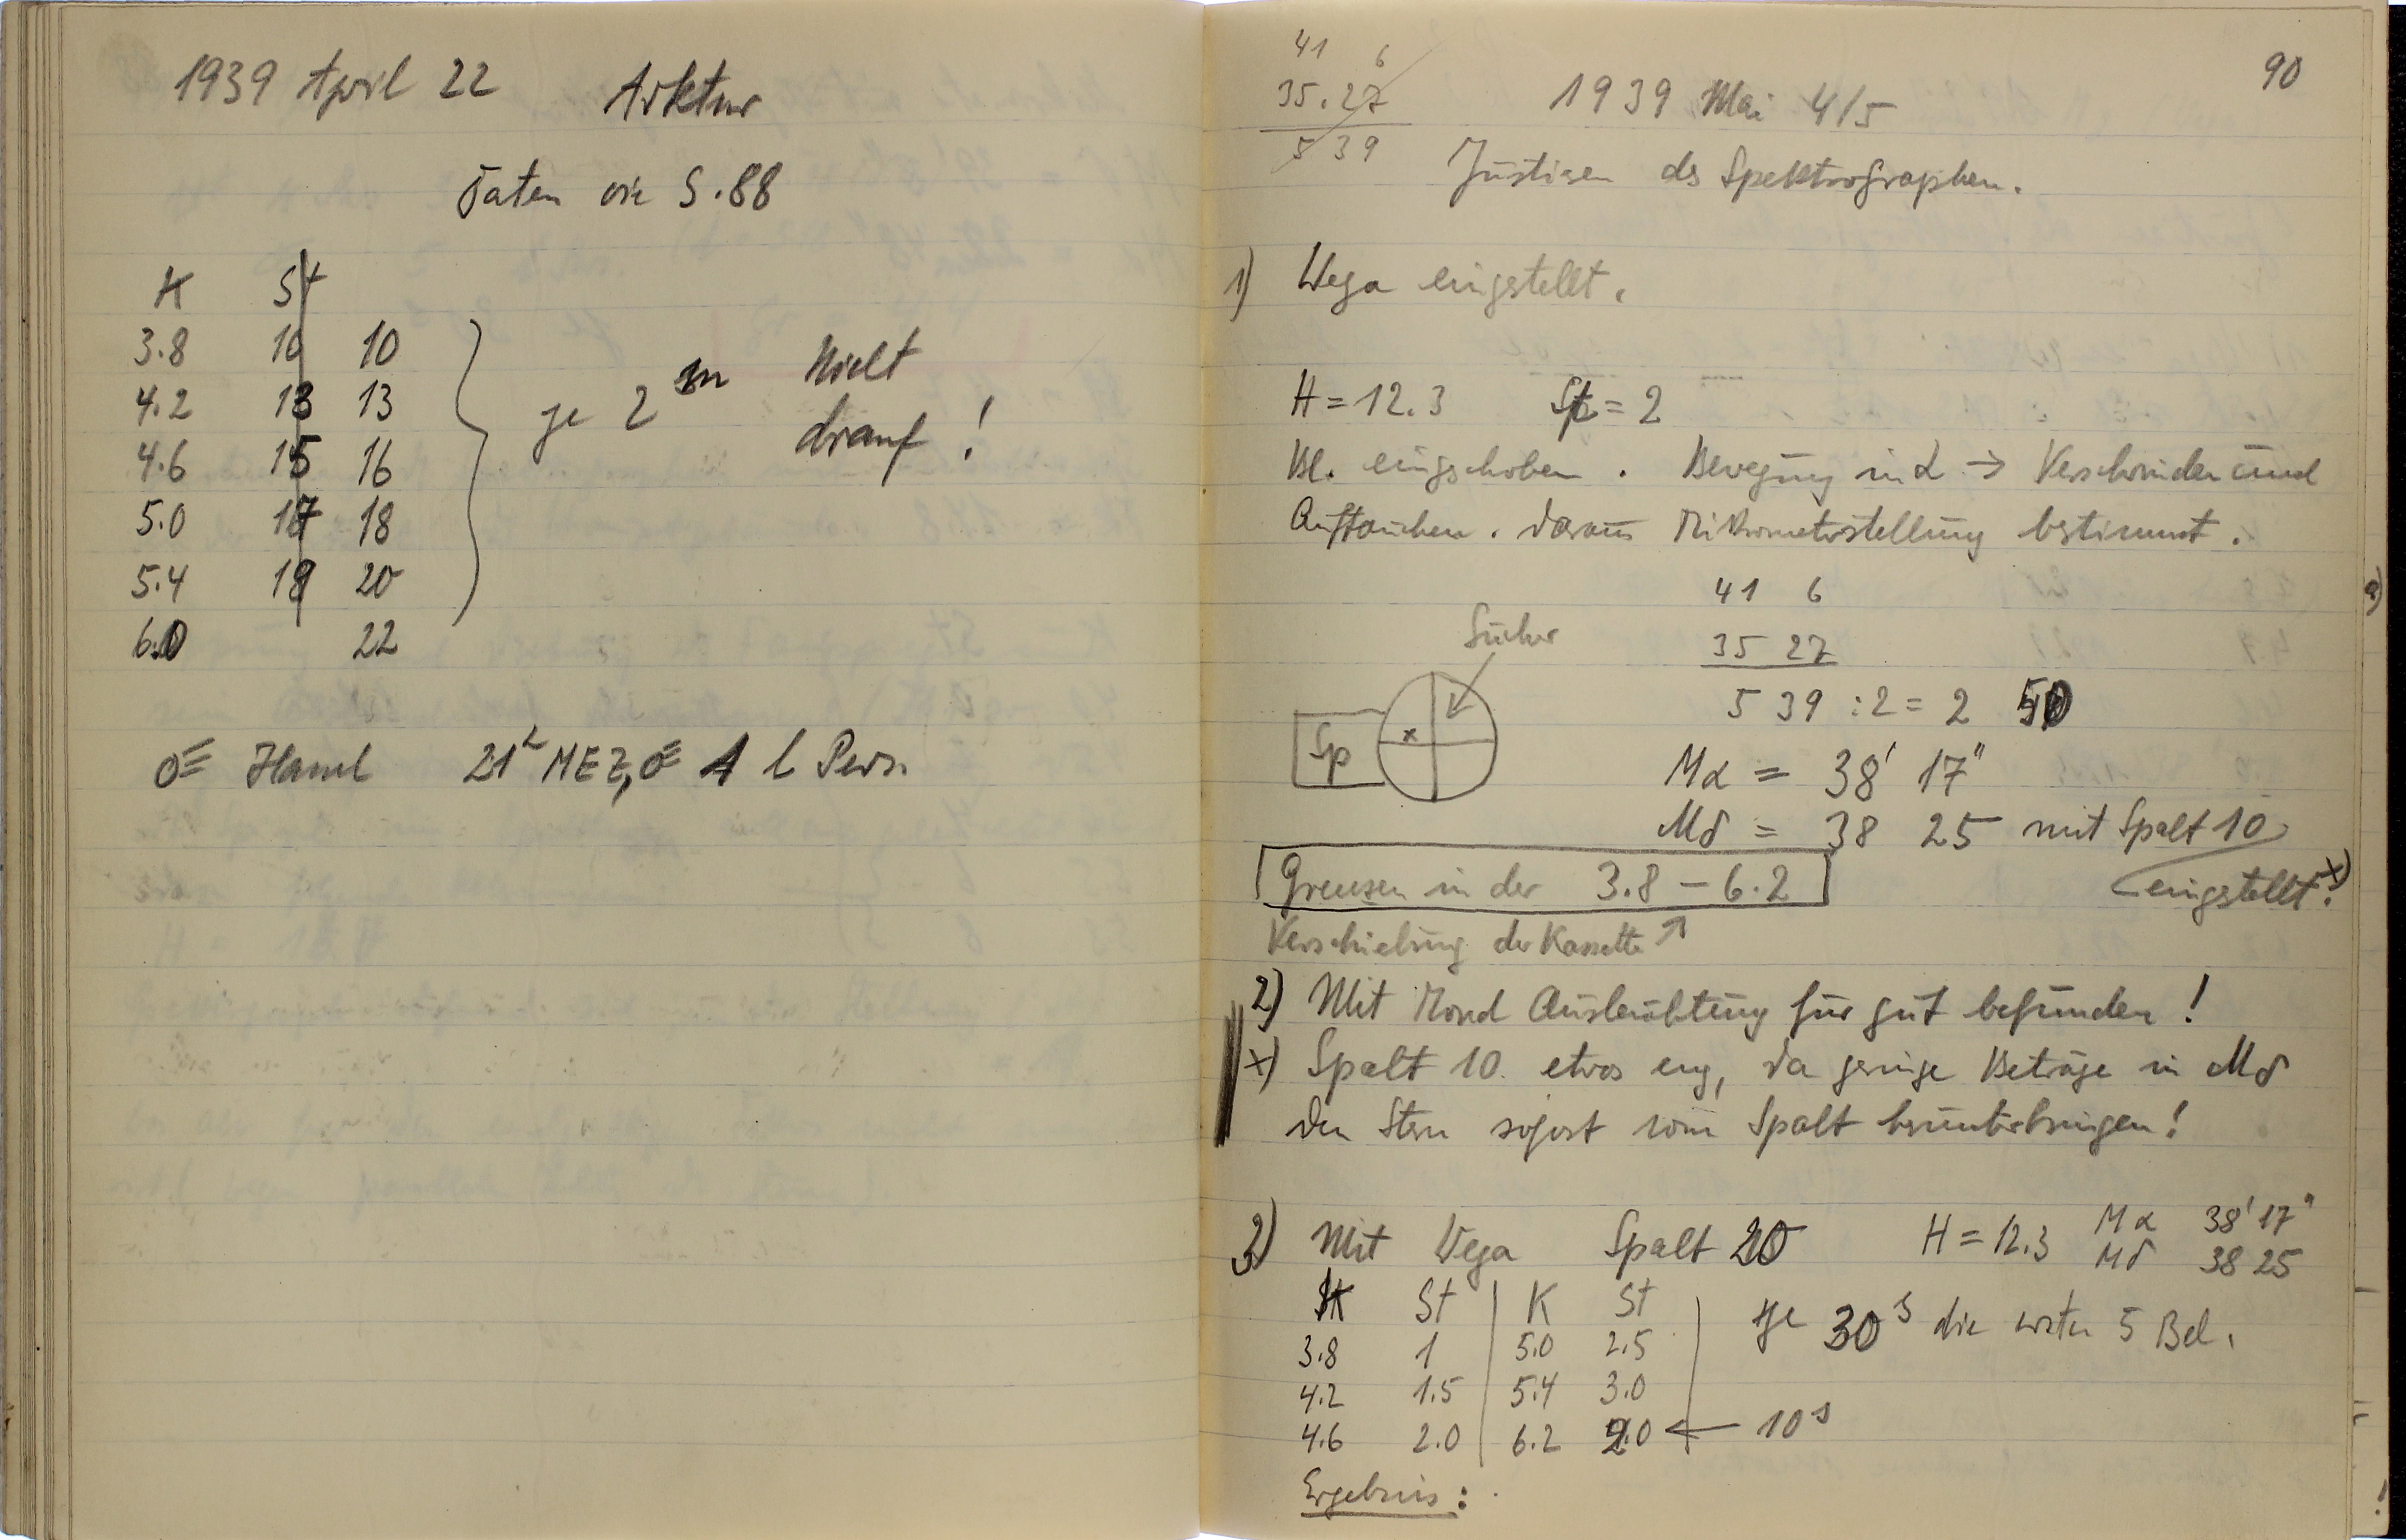 1939 April 22 Arktur
Daten wie S. 88
K St
3.8 10 10
4.2 13 13
4.6 15 16
5.0 17 18
5.4 19 20
6.0 22
je 2 m Nicht
drauf !
21 h MEZ, 1 l Pers.
90
41 6
35.27
5 39
1939 Mai 4/5
Justieren des Spektrographen.
1) Wega eingestellt.
H = 12.3 St = 2
Bl. eingeschoben. Bewegung in α → Verschwinden und
Auftauchen. Daraus Mikrometerstellung bestimmt.
41 6
35 27
5 39 : 2 = 2 50
Sucher
Sp
x
Mα = 38' 17"
Mδ = 38 25 mit Spalt 10
eingestellt. x)
Grenzen in der 3.8 – 6.2
Verschiebung der Kassette ↑
2) Mit Mond Ausleuchtung für gut befunden !
x) Spalt 10 etwas eng, da geringe Beträge in Mδ
den Stern sofort vom Spalt herunterbringen!
3) Mit Wega Spalt 20 H = 12.3 Mα 38' 17"
Mδ 38 25
K St | K St
3.8 1 5.0 2.5
4.2 1.5 5.4 3.0
4.6 2.0 6.2 2.0 ← 10 s
je 30 s die ersten 5 Bel.
Ergebnis: